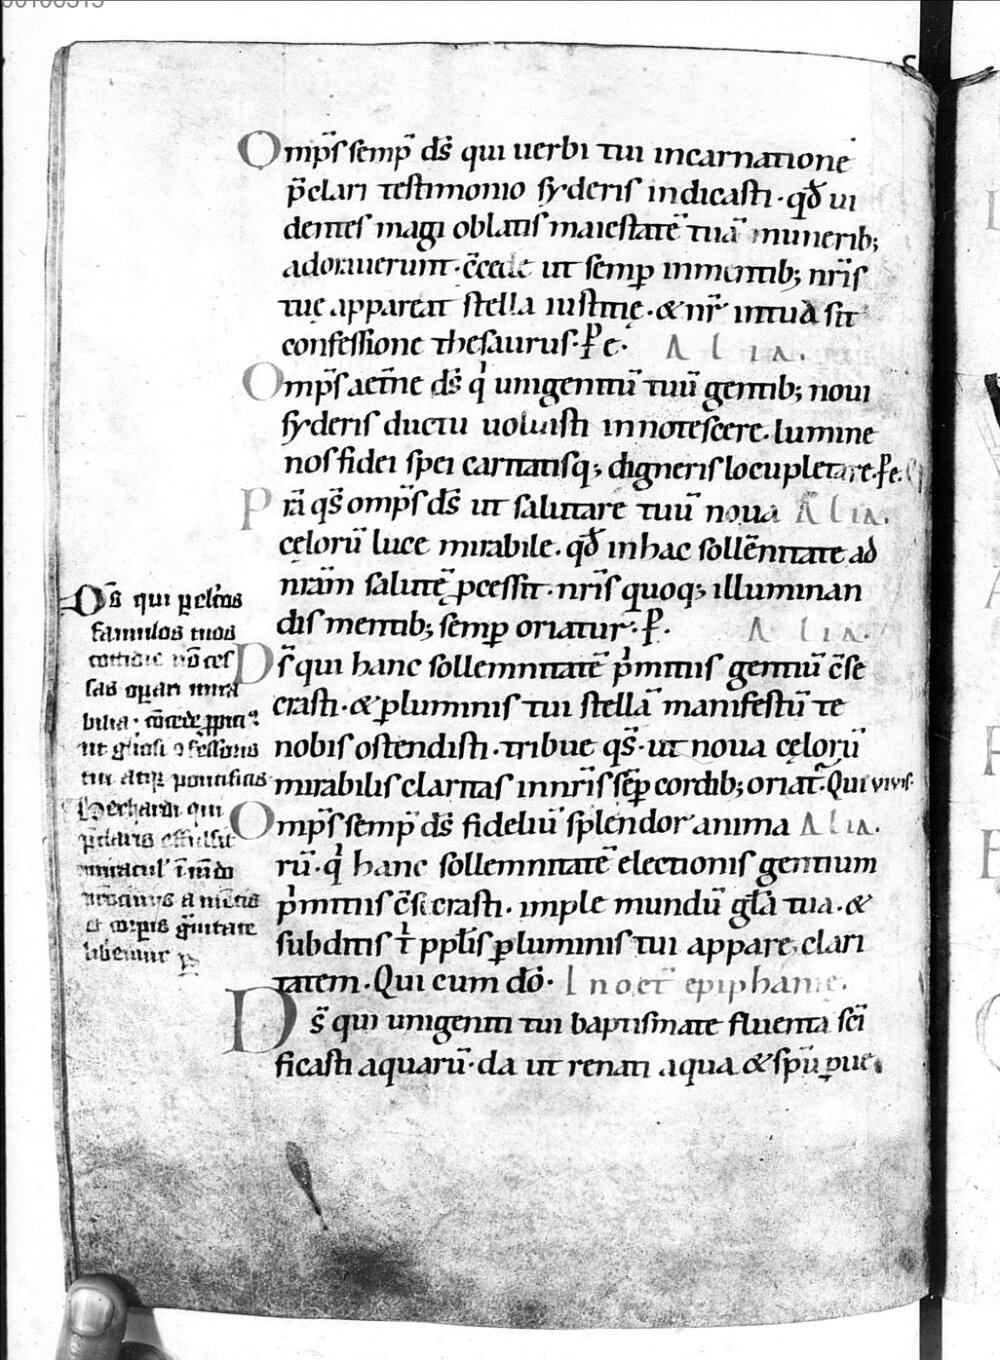 Omp̄s semp̄ ds̄ qui uerbi tui incarnatione
p̄clari testimonio syderis indicasti · qd̄ ui
dentes magi oblatis maiestatē tuā munerib;
adorauerunt · c̄cede ut semp inmentib; nr̄is
tuę appareat stella iustitię · & nr̄ intua sit
confessione thesaurus · P e · Alia.
Omp̄s aetn̄e ds̄ q unigenitū tuū gentib; noui
syderis ductu uoluisti innotescere · lumine
nos fidei spei caritatisq; digneris locupletare · P e.
Prā qs̄ omp̄s ds̄ ut salutare tuū noua Alia.
cęlorū luce mirabile · qd̄ inhac sollēnitate ad
nrām salutē pcessit · nr̄is quoq; illuminan
dis mentib; semp oriatur · P · Alia.
Ds̄ qui hanc sollemnitatē pmitiis gentiū c̄se
crasti · & pluminis tui stellā manifestū te
nobis ostendisti · tribue qs̄ · ut noua cęlorū
mirabilis claritas innr̄is sēp cordib; oriat̄ · Qui vivis
Omp̄s semp̄ ds̄ fideliū splendor anima Alia.
rū · q hanc sollemnitatē electionis gentium
pmitiis c̄secrasti · imple mundū glā tua · &
subditis t pplīs pluminis tui appare clari
tatem · Qui cum dō · In oct̄ epiphanie.
Ds̄ qui unigeniti tui baptismate fluenta sc̄i
ficasti aquarū · da ut renati aqua & spū pue
Ds̄ qui pelc̄os
famulos tuos
cottidie nō ces
sas opari mira
bilia · c̄cede ppiti9
ut gliosi 9fessoris
tui atq; pontificis
qui
effulsit
miracul
a
et corpis gūitate
libemur p